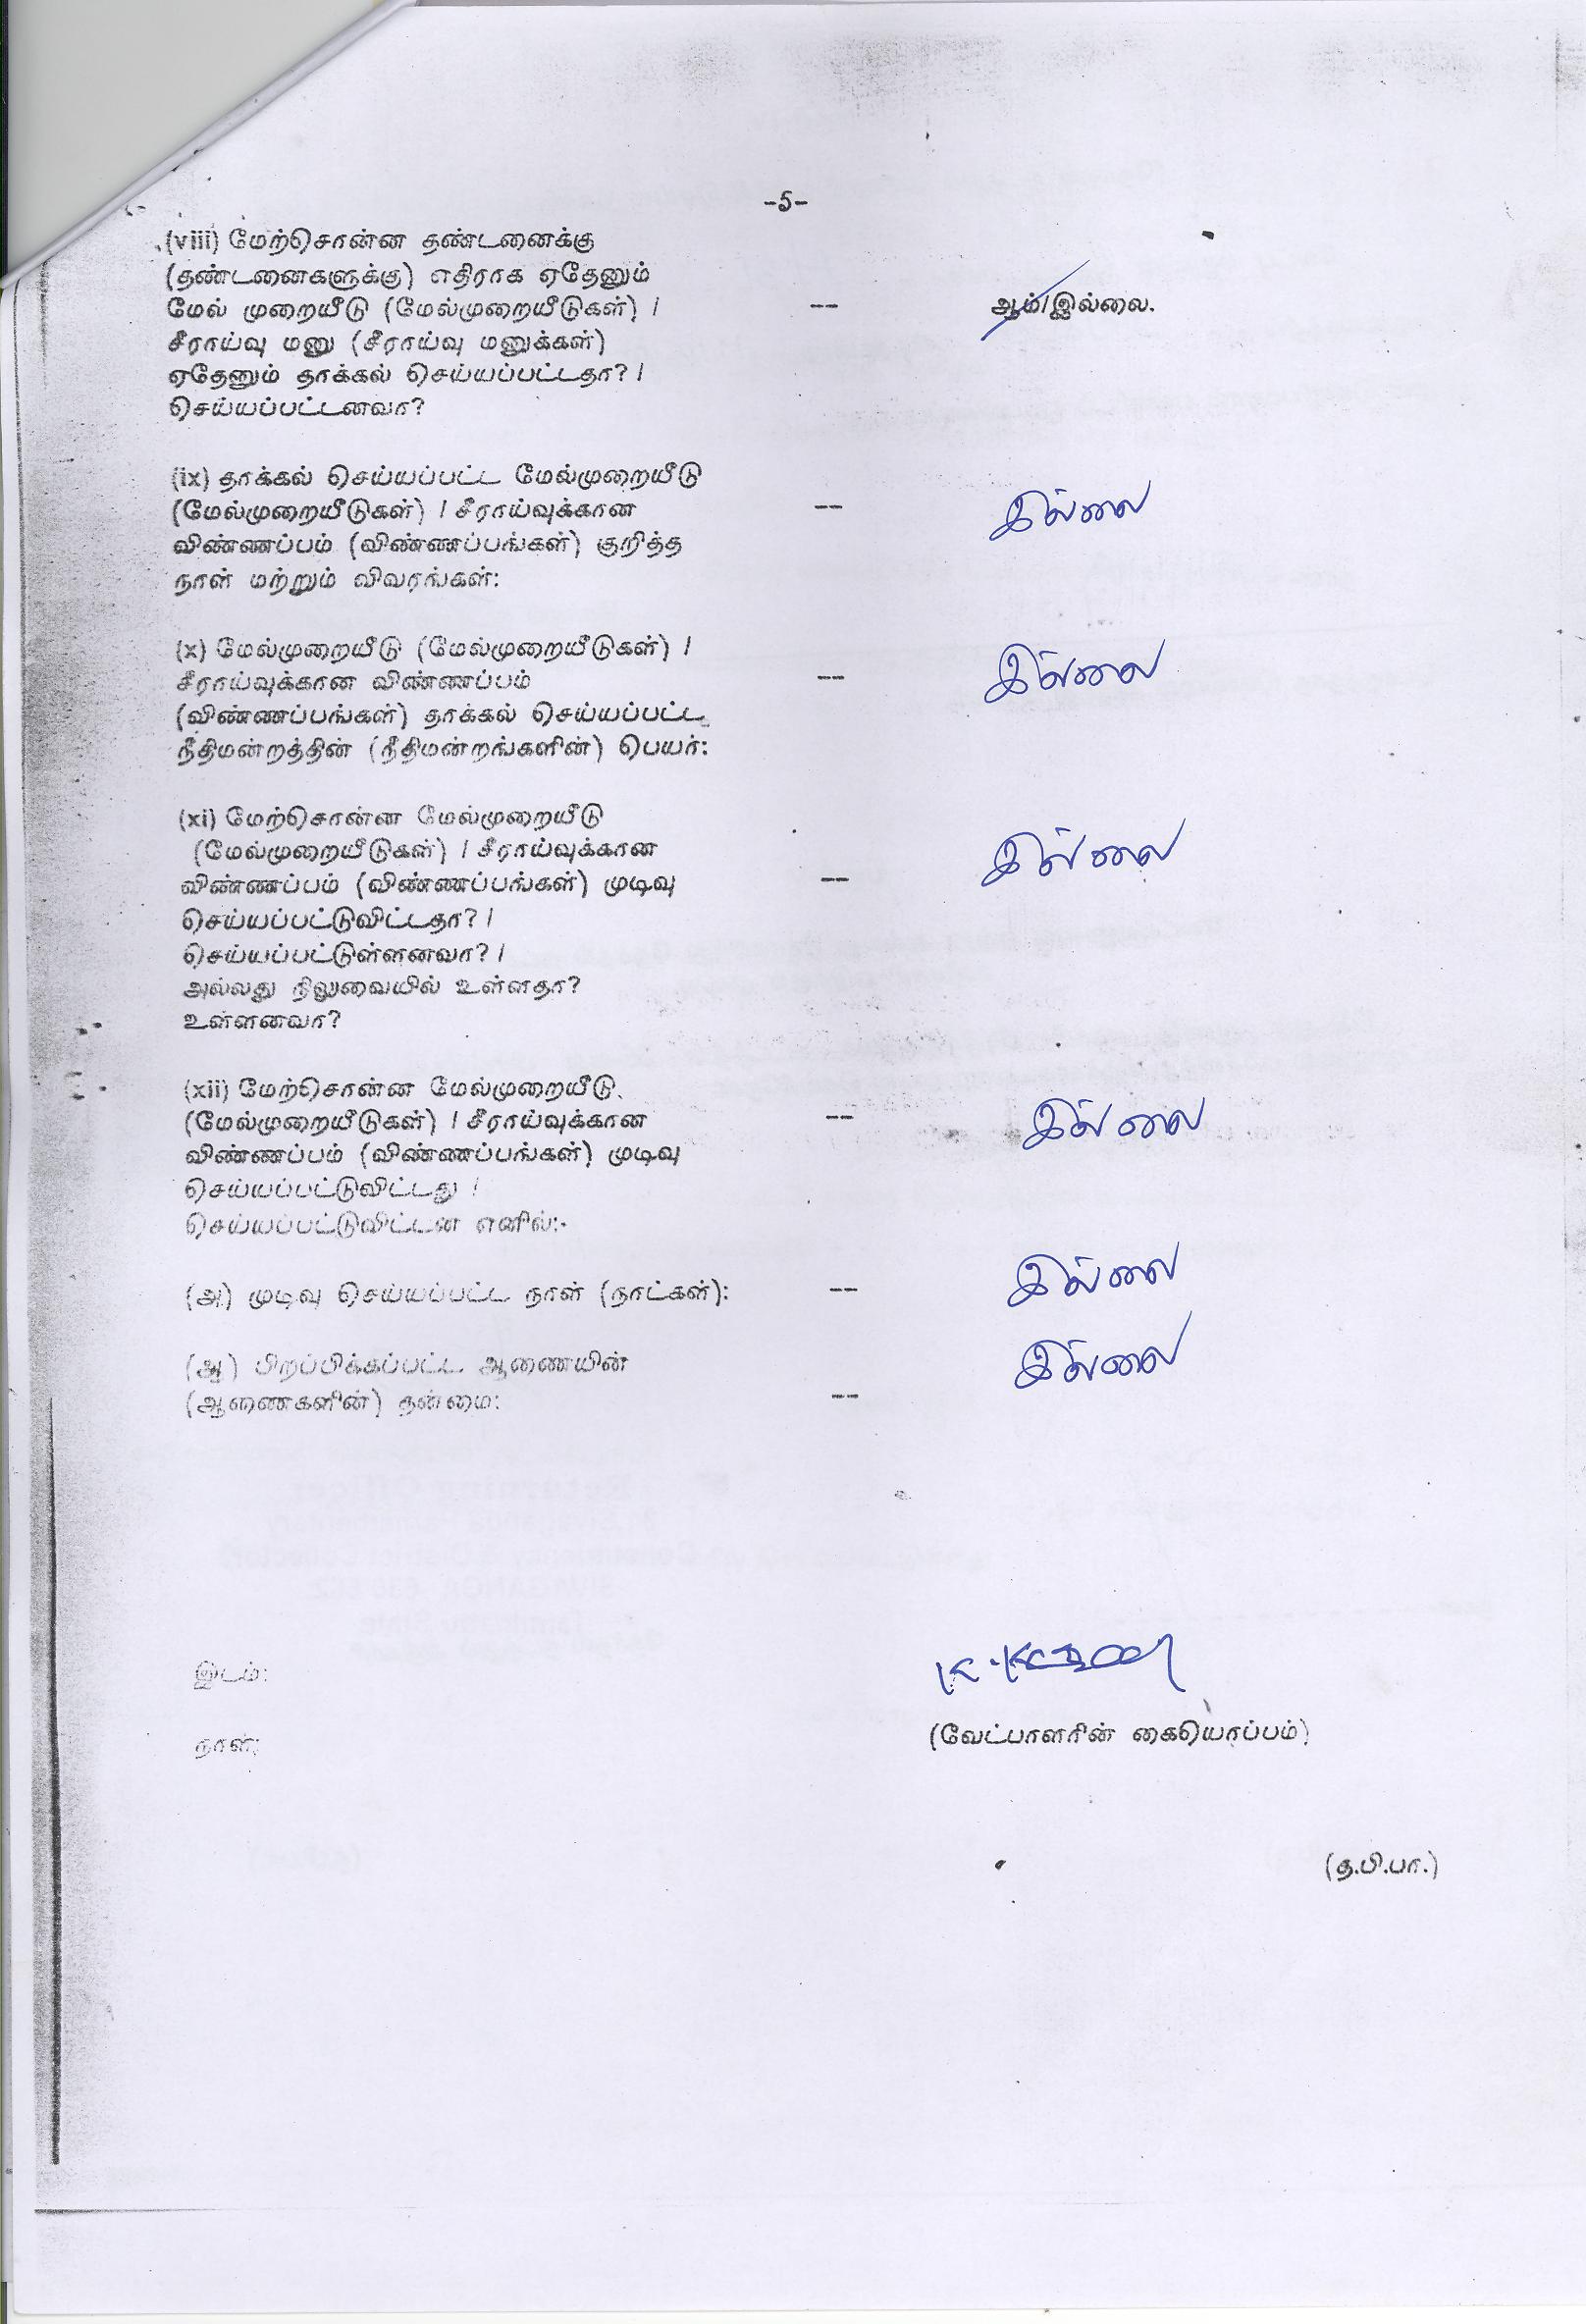 -5-
(viii) மேற்சொன்ன தண்டனைக்கு
(தண்டனைகளுக்கு) எதிராக ஏதேனும்
மேல் முறையீடு (மேல்முறையீடுகள்) / -- ஆம்/இல்லை.
சீராய்வு மனு (சீராய்வு மனுக்கள்)
ஏதேனும் தாக்கல் செய்யப்பட்டதா? /
செய்யப்பட்டனவா?
(ix) தாக்கல் செய்யப்பட்ட மேல்முறையீடு
(மேல்முறையீடுகள்) / சீராய்வுக்கான -- இல்லை
விண்ணப்பம் (விண்ணப்பங்கள்) குறித்த
நாள் மற்றும் விவரங்கள்:
(x) மேல்முறையீடு (மேல்முறையீடுகள்) /
சீராய்வுக்கான விண்ணப்பம் -- இல்லை
(விண்ணப்பங்கள்) தாக்கல் செய்யப்பட்ட
நீதிமன்றத்தின் (நீதிமன்றங்களின்) பெயர்:
(xi) மேற்சொன்ன மேல்முறையீடு
(மேல்முறையீடுகள்) / சீராய்வுக்கான இல்லை
விண்ணப்பம் (விண்ணப்பங்கள்) முடிவு --
செய்யப்பட்டுவிட்டதா? /
செய்யப்பட்டுள்ளனவா? /
அல்லது நிலுவையில் உள்ளதா?
உள்ளனவா?
(xii) மேற்சொன்ன மேல்முறையீடு
(மேல்முறையீடுகள்) / சீராய்வுக்கான -- இல்லை
விண்ணப்பம் (விண்ணப்பங்கள்) முடிவு
செய்யப்பட்டுவிட்டது /
செய்யப்பட்டுவிட்டன எனில்:-
(அ) முடிவு செய்யப்பட்ட நாள் (நாட்கள்): -- இல்லை
(ஆ) பிறப்பிக்கப்பட்ட ஆணையின் இல்லை
(ஆணைகளின்) தன்மை: --
இடம்:
நாள்: (வேட்பாளரின் கையொப்பம்)
(த.பி.பா.)